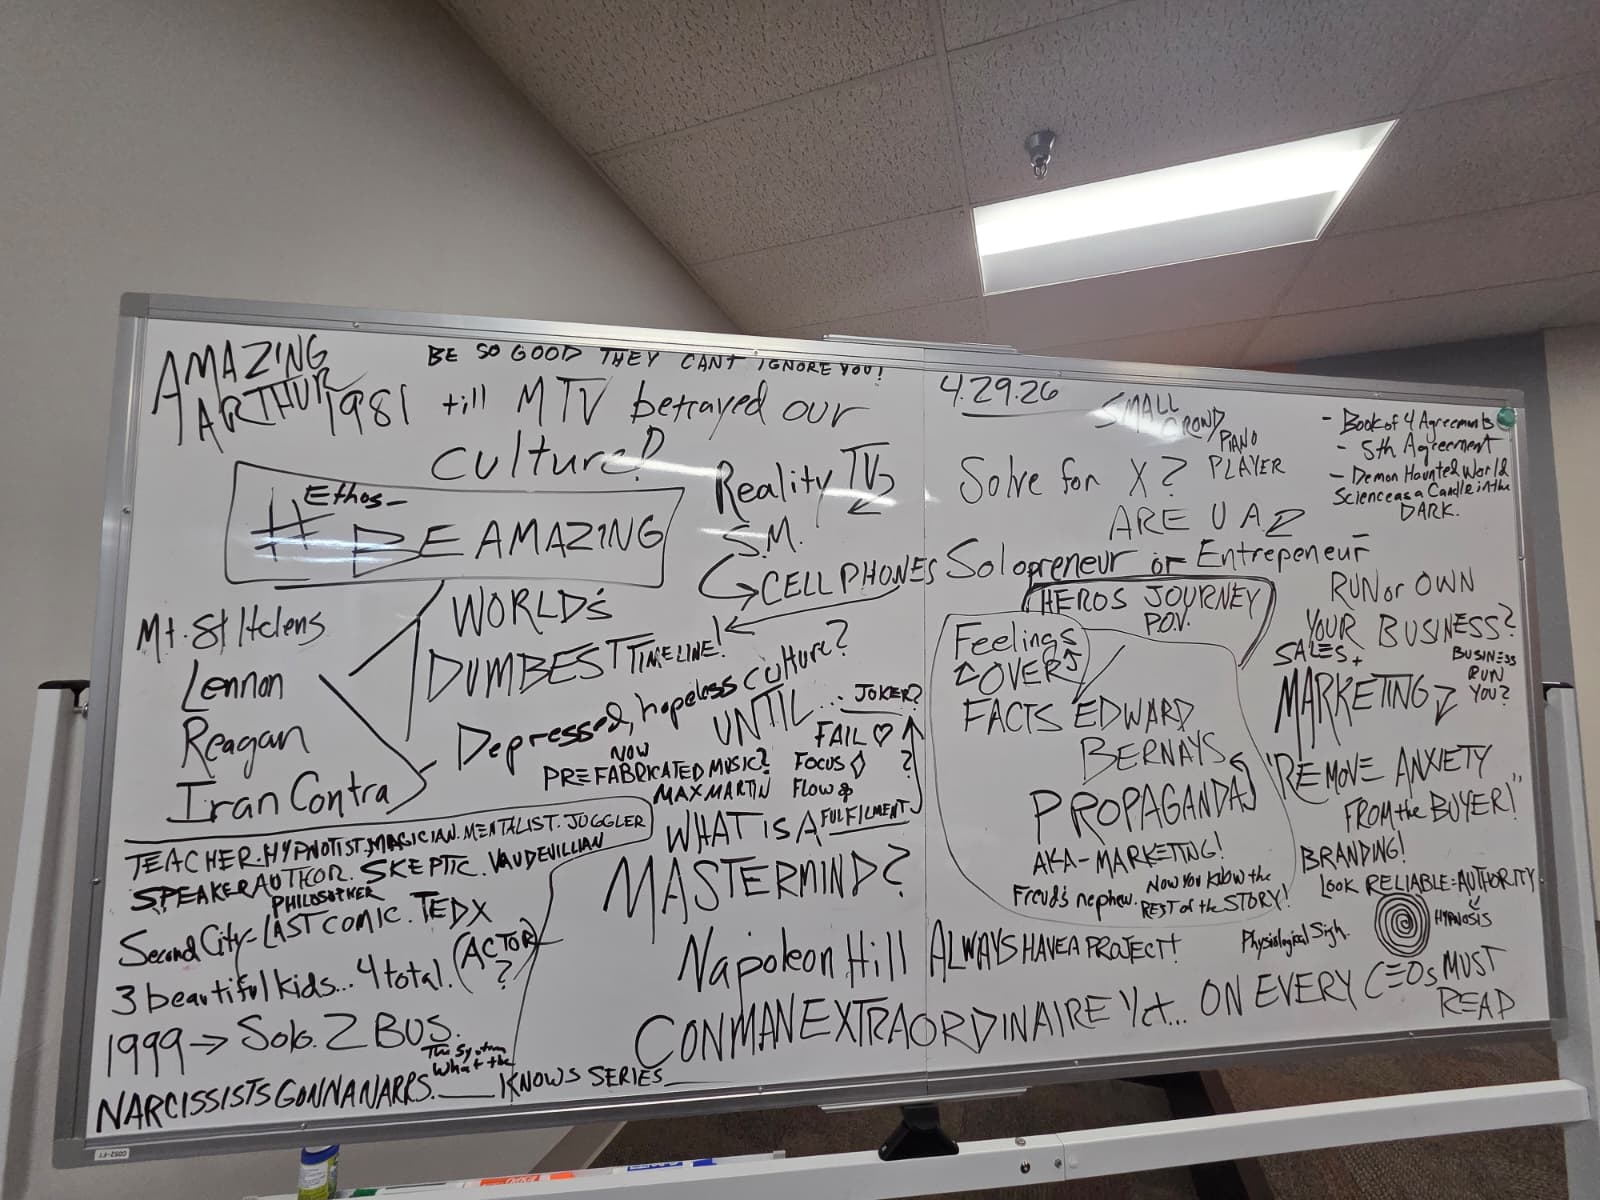 AMAZING
ARTHUR
BE SO GOOD THEY CANT IGNORE YOU!
1981 till MTV betrayed our
culture?
Ethos-
# BE AMAZING
Reality TV
S.M.
CELL PHONES
Mt. St Helens
Lennon
Reagan
Iran Contra
WORLD's
DUMBEST TIMELINE!
Depressed, hopeless culture?
UNTIL... JOKER?
NOW
PREFABRICATED MUSIC?
MAX MARTIN
FAIL ♡
Focus ◇
?
Flow &
FULFILMENT
WHAT IS A
MASTERMIND?
TEACHER. HYPNOTIST. MAGICIAN. MENTALIST. JUGGLER
SPEAKER AUTHOR. SKEPTIC. VAUDEVILLIAN
PHILOSOPHER
Second City = LAST COMIC. TEDX
3 beautiful kids... 4 total. (ACTOR)
?
1999 → Solo. 2 BUS.
The System
What the
NARCISSISTS GONNA NARRS. ___ KNOWS SERIES
Napoleon Hill
CONMAN EXTRAORDINAIRE Yet... ON EVERY CEOs MUST
READ
4.29.26
SMALL
CROND
PIANO
PLAYER
Solve for X?
ARE U A
Solopreneur or Entrepeneur
- Book of 4 Agreements
- 5th Agreement
- Demon Haunted World
Science as a Candle in the
DARK.
HEROS JOURNEY
P.O.V.
RUN or OWN
YOUR BUSINESS?
BUSINESS
RUN
YOU?
Feelings
↑ OVER ↑
FACTS
EDWARD
BERNAYS
PROPAGANDA
AKA - MARKETING!
Freud's nephew.
Now you know the
REST of the STORY!
SALES +
MARKETING
"REMOVE ANXIETY
FROM the BUYER!"
BRANDING!
LOOK RELIABLE = AUTHORITY
HYPNOSIS
Physiological Sigh.
ALWAYS HAVE A PROJECT!